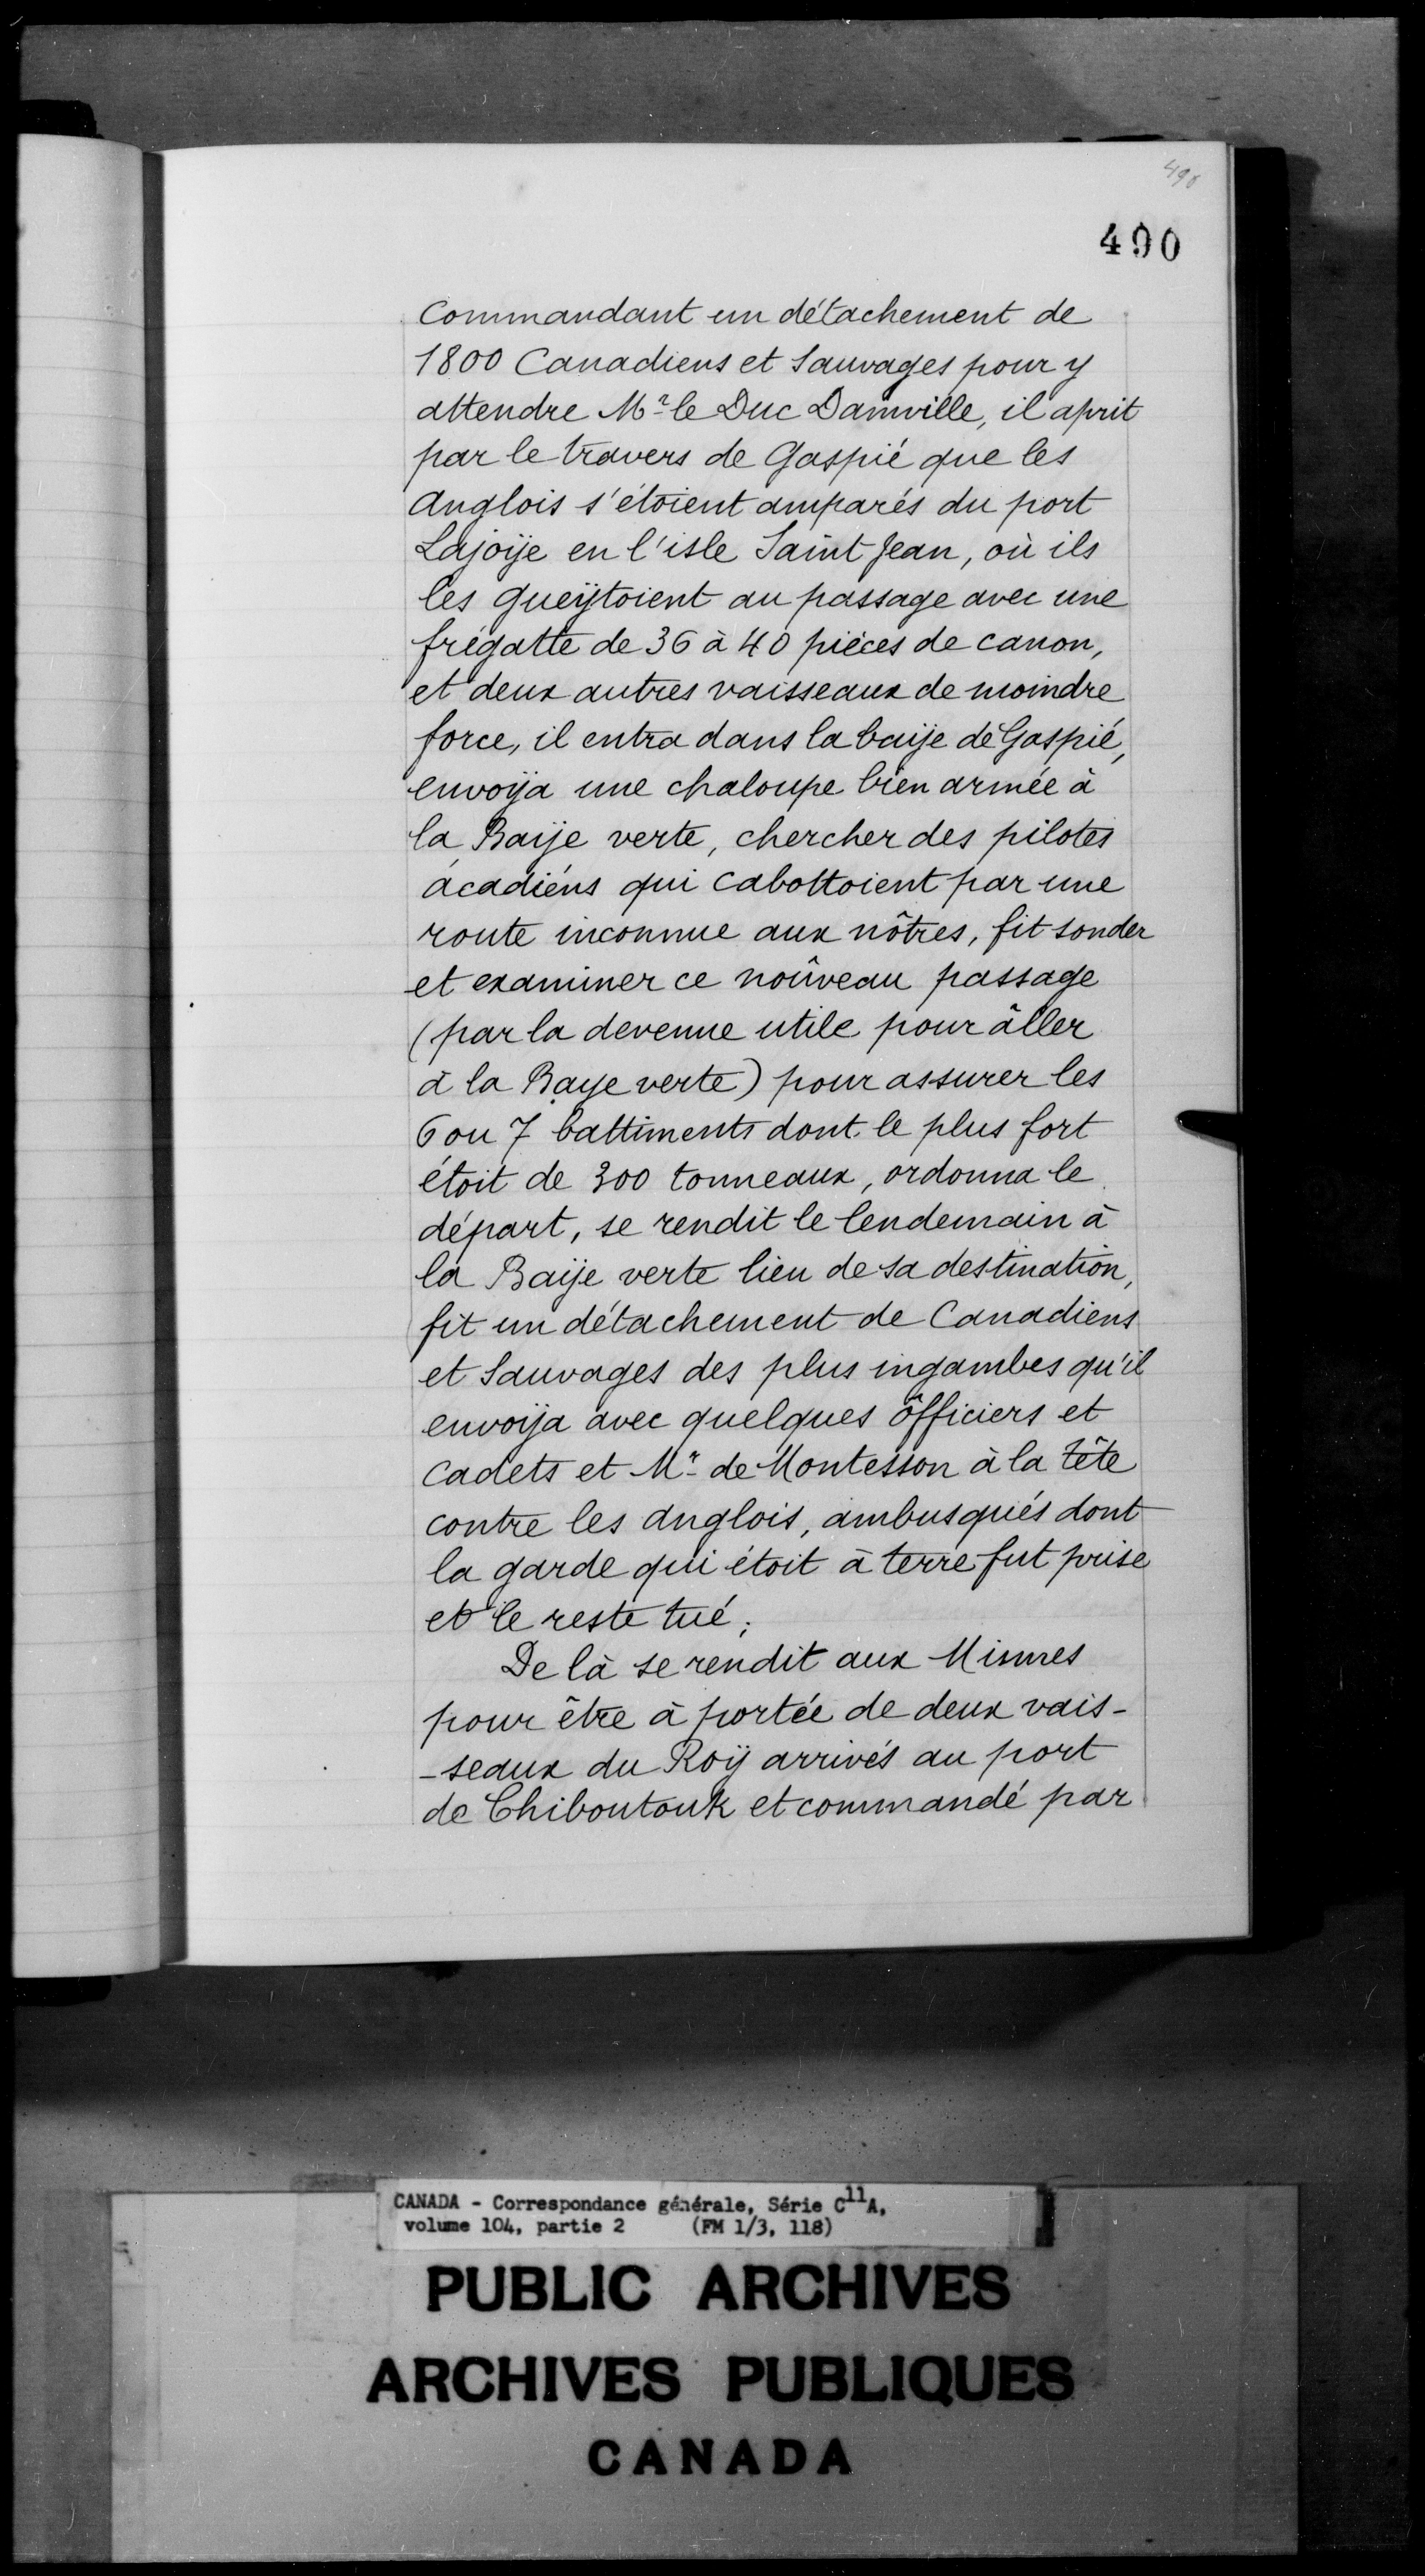 490
490
Commandant un détachement de
1800 Canadiens et Sauvages pour y
attendre Mr le Duc Damville, il aprit
par le travers de Gaspié que les
Anglois s'étoient amparés du port
Lajoÿe en l'isle Saint Jean, où ils
les gueÿtoient au passage avec une
frégatte de 36 à 40 pièces de canon,
et deux autres vaisseaux de moindre
force, il entra dans la baÿe de Gaspié,
envoÿa une chaloupe bien armée à
la Baÿe verte, chercher des pilotes
acadiens qui cabottoient par une
route inconnue aux nôtres, fit sonder
et examiner ce noûveau passage
(par la devenue utile pour âller
à la Baye verte) pour assurer les
6 ou 7 battiments dont le plus fort
étoit de 300 tonneaux, ordonna le
départ, se rendit le lendemain à
la Baÿe verte lieu de sa destination,
fit un détachement de Canadiens
et Sauvages des plus ingambes qu'il
envoÿa avec quelques ôfficiers et
cadets et Mr de Montesson à la tête
contre les anglois, ambusqués dont
la garde qui étoit à terre fut prise
et le reste tué;
De là se rendit aux Minnes
pour être à portée de deux vais-
-seaux du Roÿ arrivés au port
de Chiboutouk et commandé par
CANADA - Correspondance générale, Série C11A,
volume 104, partie 2 (FM 1/3, 118)
PUBLIC ARCHIVES
ARCHIVES PUBLIQUES
CANADA